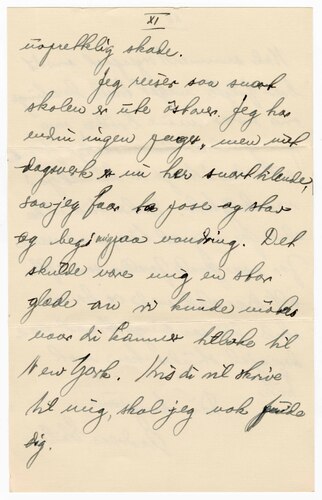 XI
uopretklig skade.
Jeg reiser saa snart
skolen er ute östover. Jeg har
endnu ingen penger, men mit
dagsverk er nu her snart tilende,
saa jeg faar ta pose og stav
og begi mig paa vandring. Det
skulde være mig en stor
glæde om vi kunde møtes
naar du kommer tilbake til
New York. Hvis du vil skrive
til mig, skal jeg nok finde
dig.